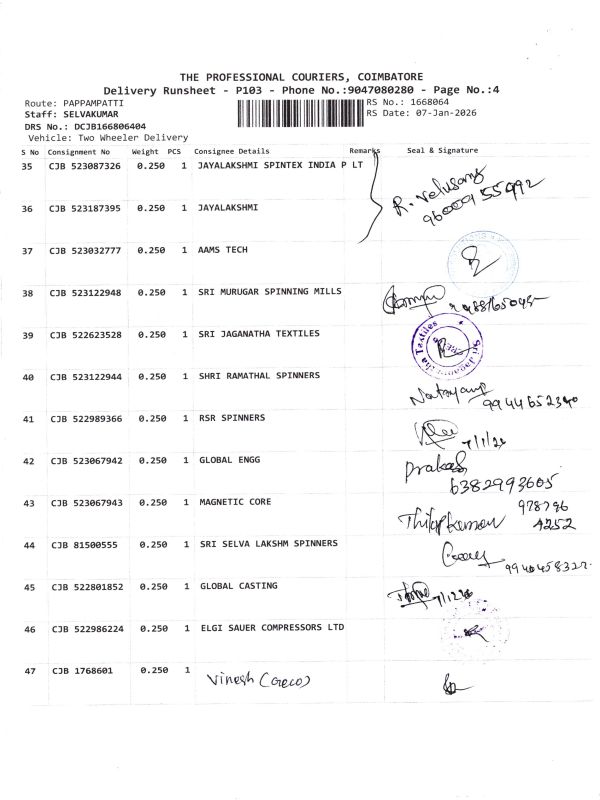 THE PROFESSIONAL COURIERS, COIMBATORE
Delivery Runsheet - P103 - Phone No.:9047080280 - Page No.:4
Route: PAPPAMPATTI RS No.: 1668064
Staff: SELVAKUMAR RS Date: 07-Jan-2026
DRS No.: DCJB166806404
Vehicle: Two Wheeler Delivery
S No Consignment No Weight PCS Consignee Details Remarks Seal & Signature
35 CJB 523087326 0.250 1 JAYALAKSHMI SPINTEX INDIA P LT
R. Velusamy
9600955992
36 CJB 523187395 0.250 1 JAYALAKSHMI
37 CJB 523032777 0.250 1 AAMS TECH
38 CJB 523122948 0.250 1 SRI MURUGAR SPINNING MILLS
39 CJB 522623528 0.250 1 SRI JAGANATHA TEXTILES
Sri Jaganatha Textiles
40 CJB 523122944 0.250 1 SHRI RAMATHAL SPINNERS
9944652340
41 CJB 522989366 0.250 1 RSR SPINNERS
7/1/26
42 CJB 523067942 0.250 1 GLOBAL ENGG
Prakash
6382993605
43 CJB 523067943 0.250 1 MAGNETIC CORE
978796
4252
44 CJB 81500555 0.250 1 SRI SELVA LAKSHM SPINNERS
45 CJB 522801852 0.250 1 GLOBAL CASTING
46 CJB 522986224 0.250 1 ELGI SAUER COMPRESSORS LTD
47 CJB 1768601 0.250 1 Vinesh (Greco)